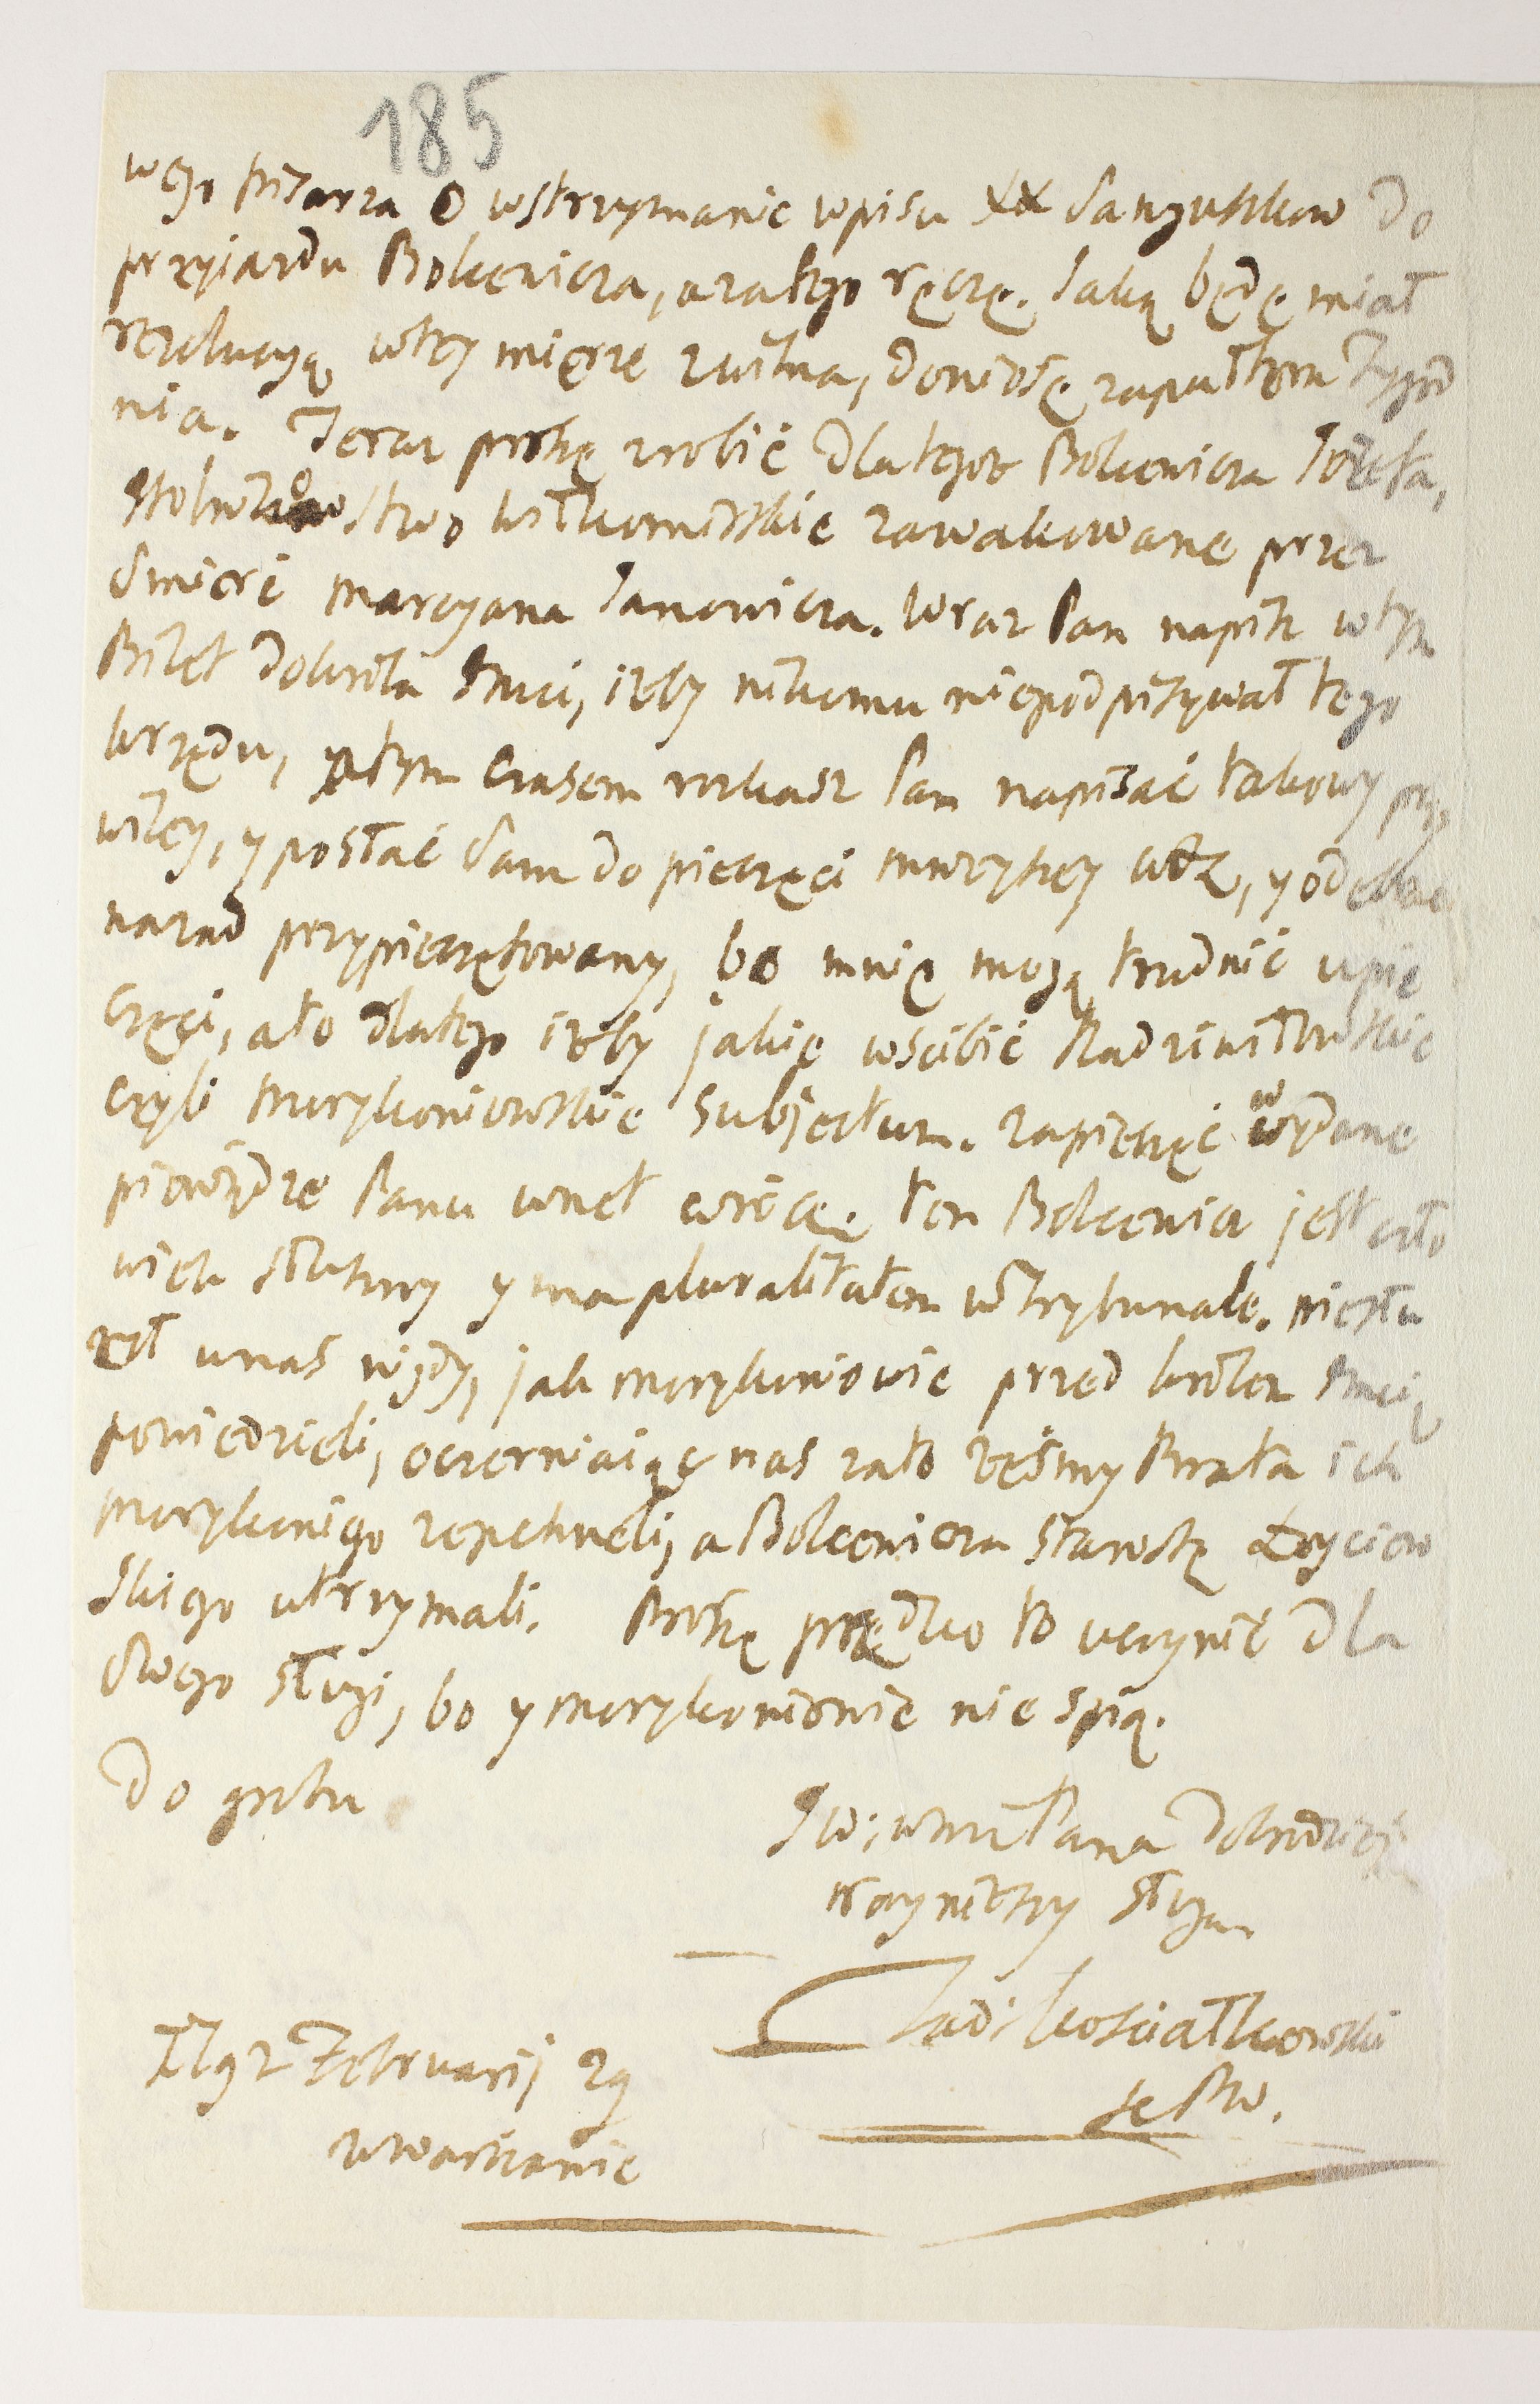 185
wego pisarza o wstrzymanie wpisu XX Sanguszkow do
przyiazdu Bolcewicza, a za tego ręczę. Jaką będę miał
rezolucyą w tey mięrze z Wilna, doniosę za pułtora tygod
nia. Teraz proszę zrobić dla tegoż Bolcewicza Jozefa,
Stolnikowstwo Wiłkomirskie zawakowane przez
smierć Marcyana Janowicza. Wraz Pan napisz w tym
Bilet do Króla Jmci, iżby nikomu niepodpisywał tego
Urzędu, a tym czasem rozkasz Pan napisać takowy przy
wiley, y posłać sam do pieczęci mnieyszey WXL, y odebrać
nazad przypieczętowany, bo mnię mogą trudnić u pie
częci, a to dla tego iżby jakie wścibić Radziwiłłowskie
czyli Morykoniowskie subjectum. Za pieczęć wydane
pieniądze Panu wnet wrócę. Ten Bolcewicz jest czło
wiek stateczny y ma pluralitatem w Trybunale. Niesłu
żył u nas nigdy, jak Morykoniowie przed Królem Jmcią
powiedzieli, oczerniaiąc nas za to żeśmy Brata ich
Morykoniego zepchneli, a Bolcewicza Starostę Łoyciow
skiego utrzymali. Proszę prędko to uczynić dla
swego sługi, bo y Morykoniowie nie spią.
Do grobu
JW; WMC Pana Dobrodzieja
nayniższy sługa
Tad: Kościałkowski
1792 Februarij 29
w Warszawie